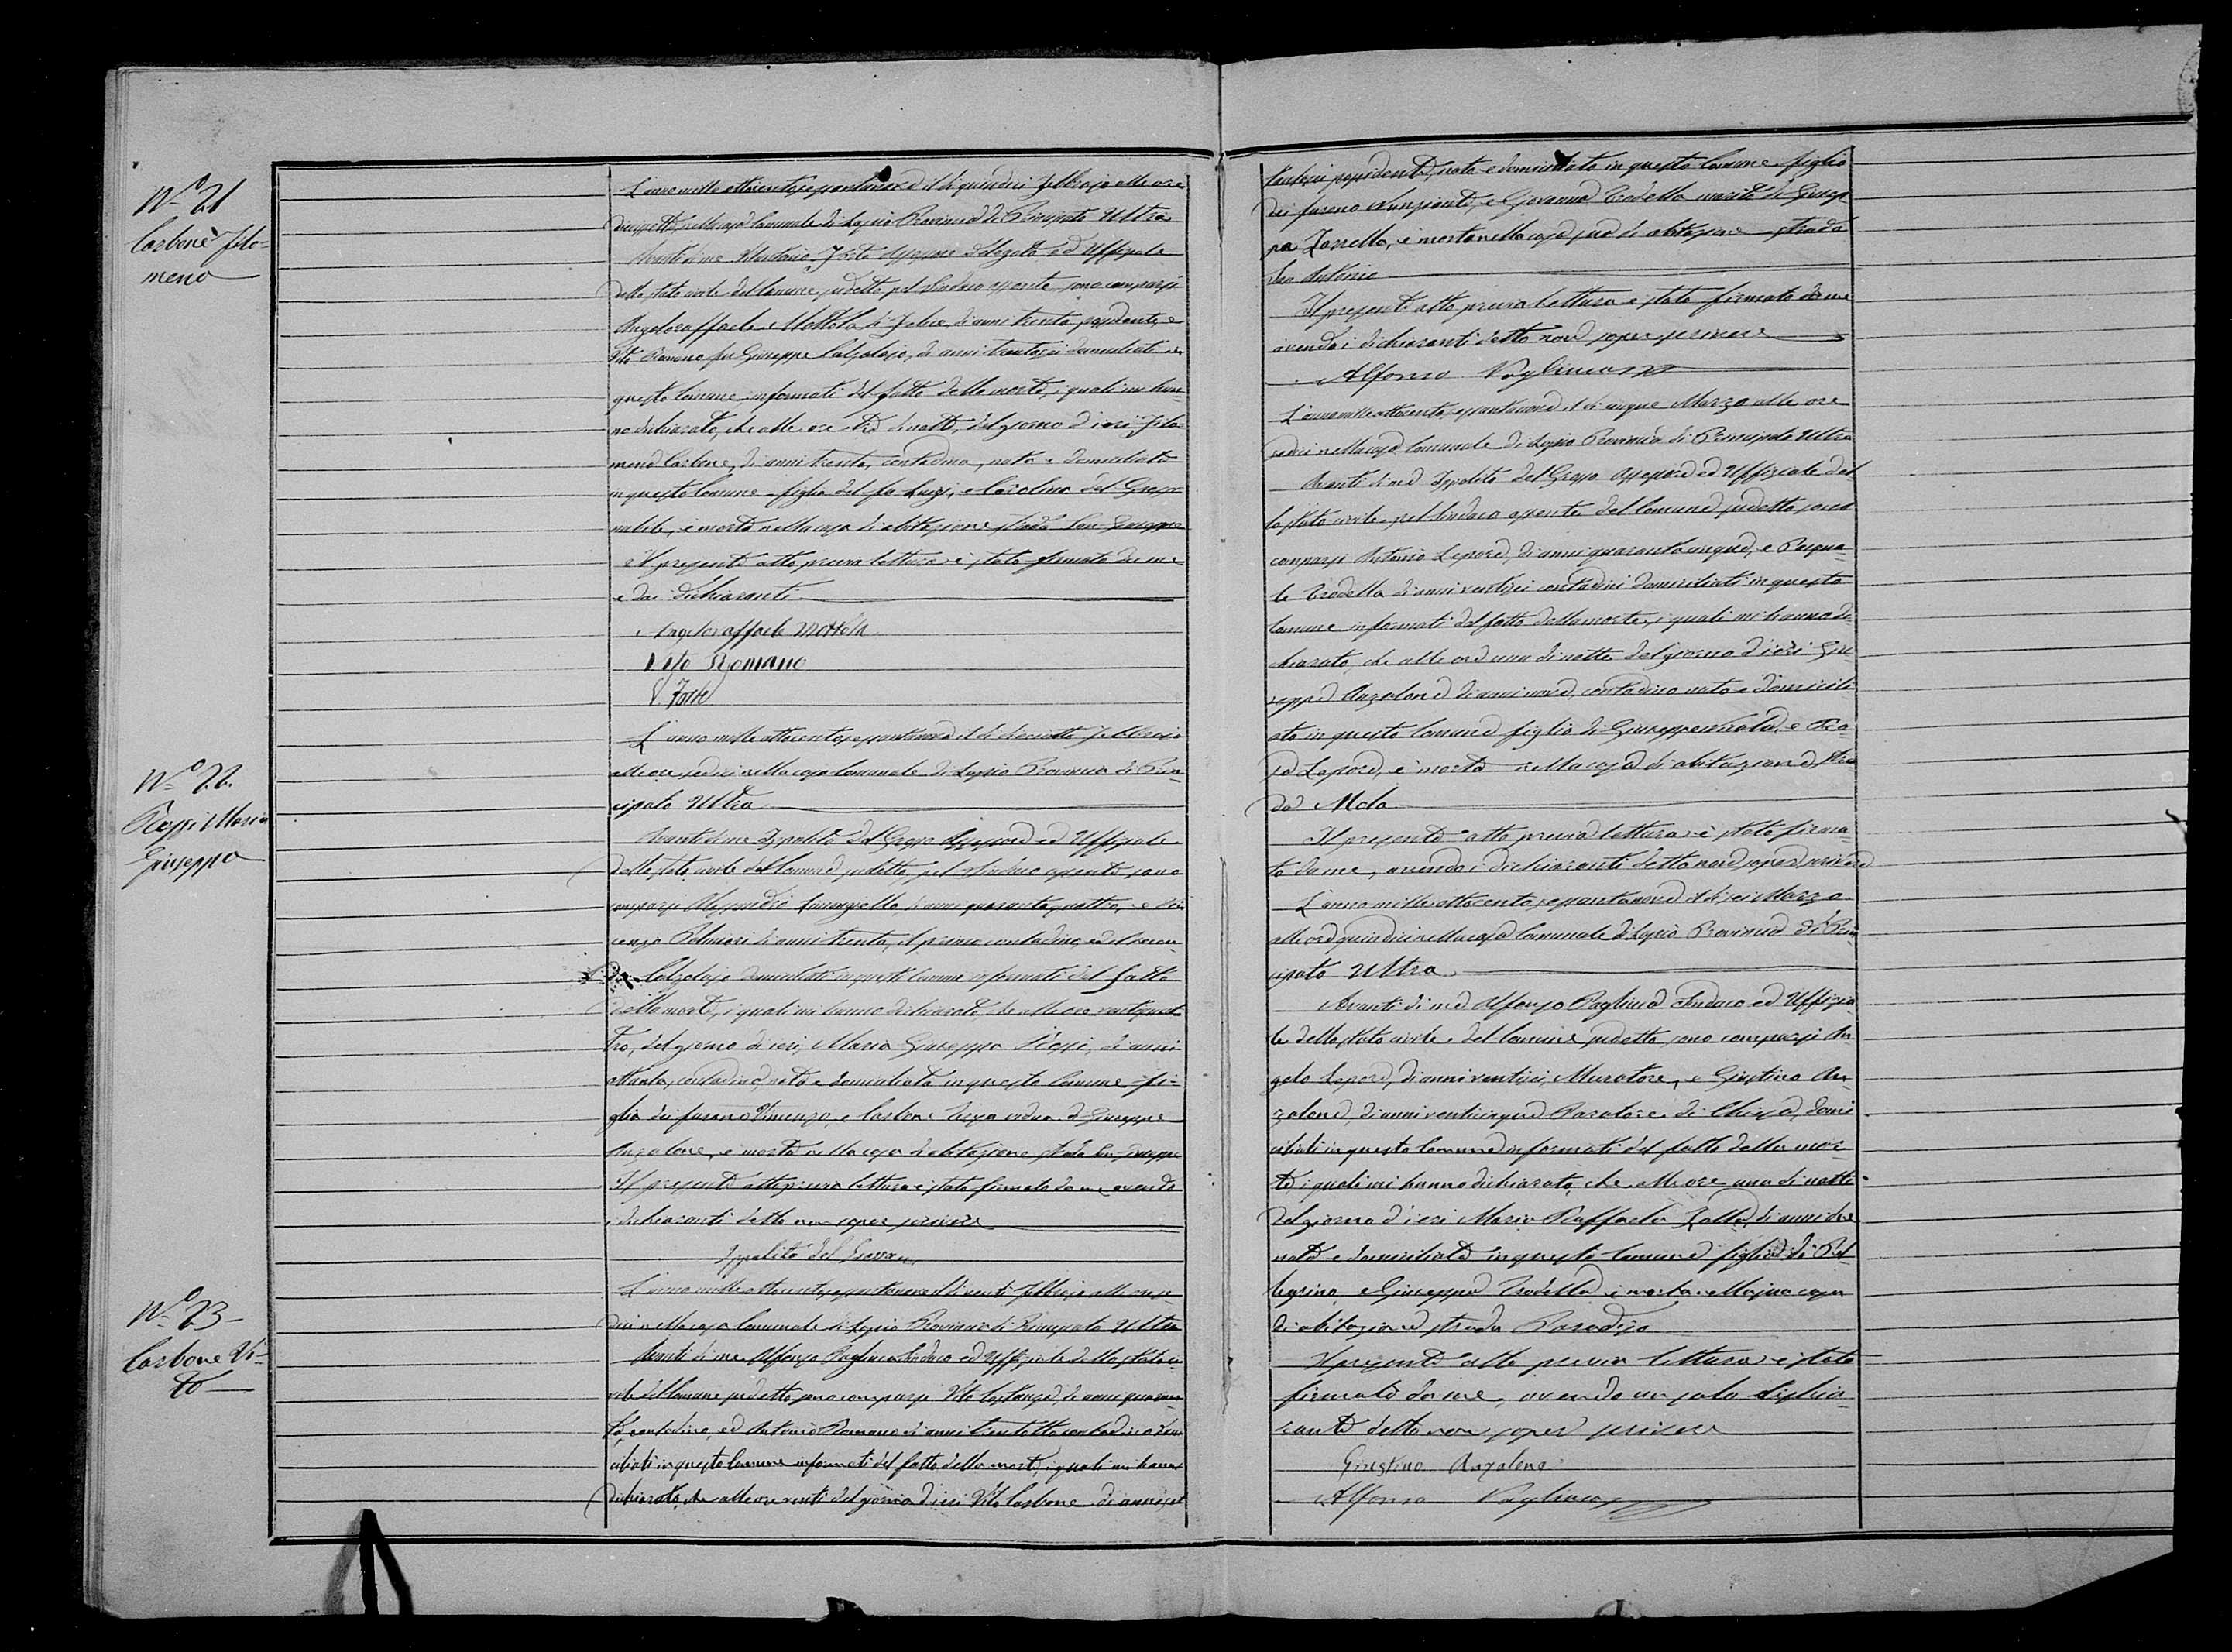 Nº 21
Carbone Filo=
mena
L'anno mille ottocento sessantanove il dì quindici Febbrajo alle ore
diciassette nella casa Comunale di Lapio Provincia di Principato Ultra
Avanti di me Vitantonio Forte Assessore delegato ed Uffiziale
dello stato civile del Comune sudetto pel Sindaco assente sono comparsi
Angeloraffaele Mottola di Felice, di anni trenta, possidente, e
Vito Romano fu Giuseppe Calzolajo, di anni trentasei domiciliati in
questo Comune informati del fatto della morte, i quali mi han=
no dichiarato, che alle ore tre di notte, del giorno d'ieri, Filo=
mena Carbone, di anni trenta, contadina, nata e domiciliata
in questo Comune figlia del fu Luigi, e Carolina del Grosso
nubile, è morta nella casa d'abitazione strada San Giuseppe
Il presente atto previa lettura è stato firmato da me
e dai dichiaranti
Angeloraffaele Mottola
Vito Romano
V. Forte
Nº 22.
Rossi Maria
Giuseppa
L'anno mille ottocento sessantanove il dì diciotto Febbrajo
alle ore sedici nella casa Comunale di Lapio Provincia di Prin=
cipato Ultra
Avanti di me Ippolito del Grosso Assessore ed Uffiziale
dello stato civile del Comune sudetto, pel Sindaco assente sono
comparsi di anni quaranta quattro, e Vin
cenzo di anni trenta, il primo contadino, ed il secon
do Calzolajo domiciliati in questo Comune informati del fatto
della morte, i quali mi hanno dichiarato che alle ore ventiquat
tro, del giorno di ieri, Maria Giuseppa Rossi, di anni
ottanta, contadina, nata e domiciliata in questo Comune fi=
glia dei furono Vincenzo, e Carbone vedova di Giuseppe
Anzalone, è morta nella casa d'abitazione strada San Giuseppe
Il presente atto previa lettura è stato firmato da me avendo
i dichiaranti detto non saper scrivere
Ippolito del Grosso
Nº 23
Carbone Vi=
to
L'anno mille ottocento sessantanove il dì venti Febbrajo alle ore se
dici nella casa Comunale di Lapio Provincia di Principato Ultra
Avanti di me Alfonso Pagliuca Sindaco ed Uffiziale dello stato ci
vile del Comune sudetto sono comparsi Vito Costanza, di anni quaran
ta, contadino, ed Antonio Romano di anni trentotto contadino domi
ciliati in questo Comune informati del fatto della morte, i quali mi hanno
dichiarato, che alle ore venti del giorno d'ieri Vito Carbone di anni set
tantasei possidente, nato e domiciliato in questo Comune figlio
dei furono Nunziante, e Giovanna Trodella marito di Giusep
pa Zarrella, è morto nella casa sua di abitazione strada
San Antonio
Il presente atto previa lettura è stato firmato da me
avendo i dichiaranti detto non saper scrivere
Alfonso Pagliuca
L'anno mille ottocento sessantanove il dì cinque Marzo alle ore
sedici nella casa Comunale di Lapio Provincia di Principato Ultra
Avanti di me Ippolito del Grosso Assessore ed Uffiziale del
lo stato civile pel Sindaco assente del Comune sudetto sono
comparsi Antonio Lepore, di anni quarantacinque, e Pasqua=
le Trodella di anni ventisei contadini domiciliati in questo
Comune informati del fatto della morte, i quali mi hanno di=
chiarato, che alle ore una di notte del giorno d'ieri Giu=
seppe Anzalone di anni nove, contadino nato e domicili
ato in questo Comune figlio di Giuseppenicola, e Ro=
sa Lepore, è morto nella casa di abitazione Stra
da Mola
Il presente atto previa lettura è stato firma=
to da me, avendo i dichiaranti detto non saper scrivere
L'anno mille ottocento sessantanove il dì sei Marzo
alle ore quindici nella casa Comunale di Lapio Provincia di Prin
cipato Ultra
Avanti di me Alfonso Pagliuca Sindaco ed Uffizia
le dello stato civile del Comune sudetto sono comparsi An
gelo Lepore, di anni ventisei, Muratore, e Giustino An
zalone, di anni venticinque Paratore di Chiesa, domi
ciliati in questo Comune informati del fatto della mor
te, i quali mi hanno dichiarato, che alle ore una di notte
del giorno d'ieri Maria Raffaela di anni due
nata e domiciliata in questo Comune figlia di Pel
legrino e Giuseppa Trodella è morta nella sua casa
di abitazione strada Paradiso
Il presente atto previa lettura è stato
firmato da me, avendo un solo dichia=
rante detto non saper scrivere
Giustino Anzalone
Alfonso Pagliuca